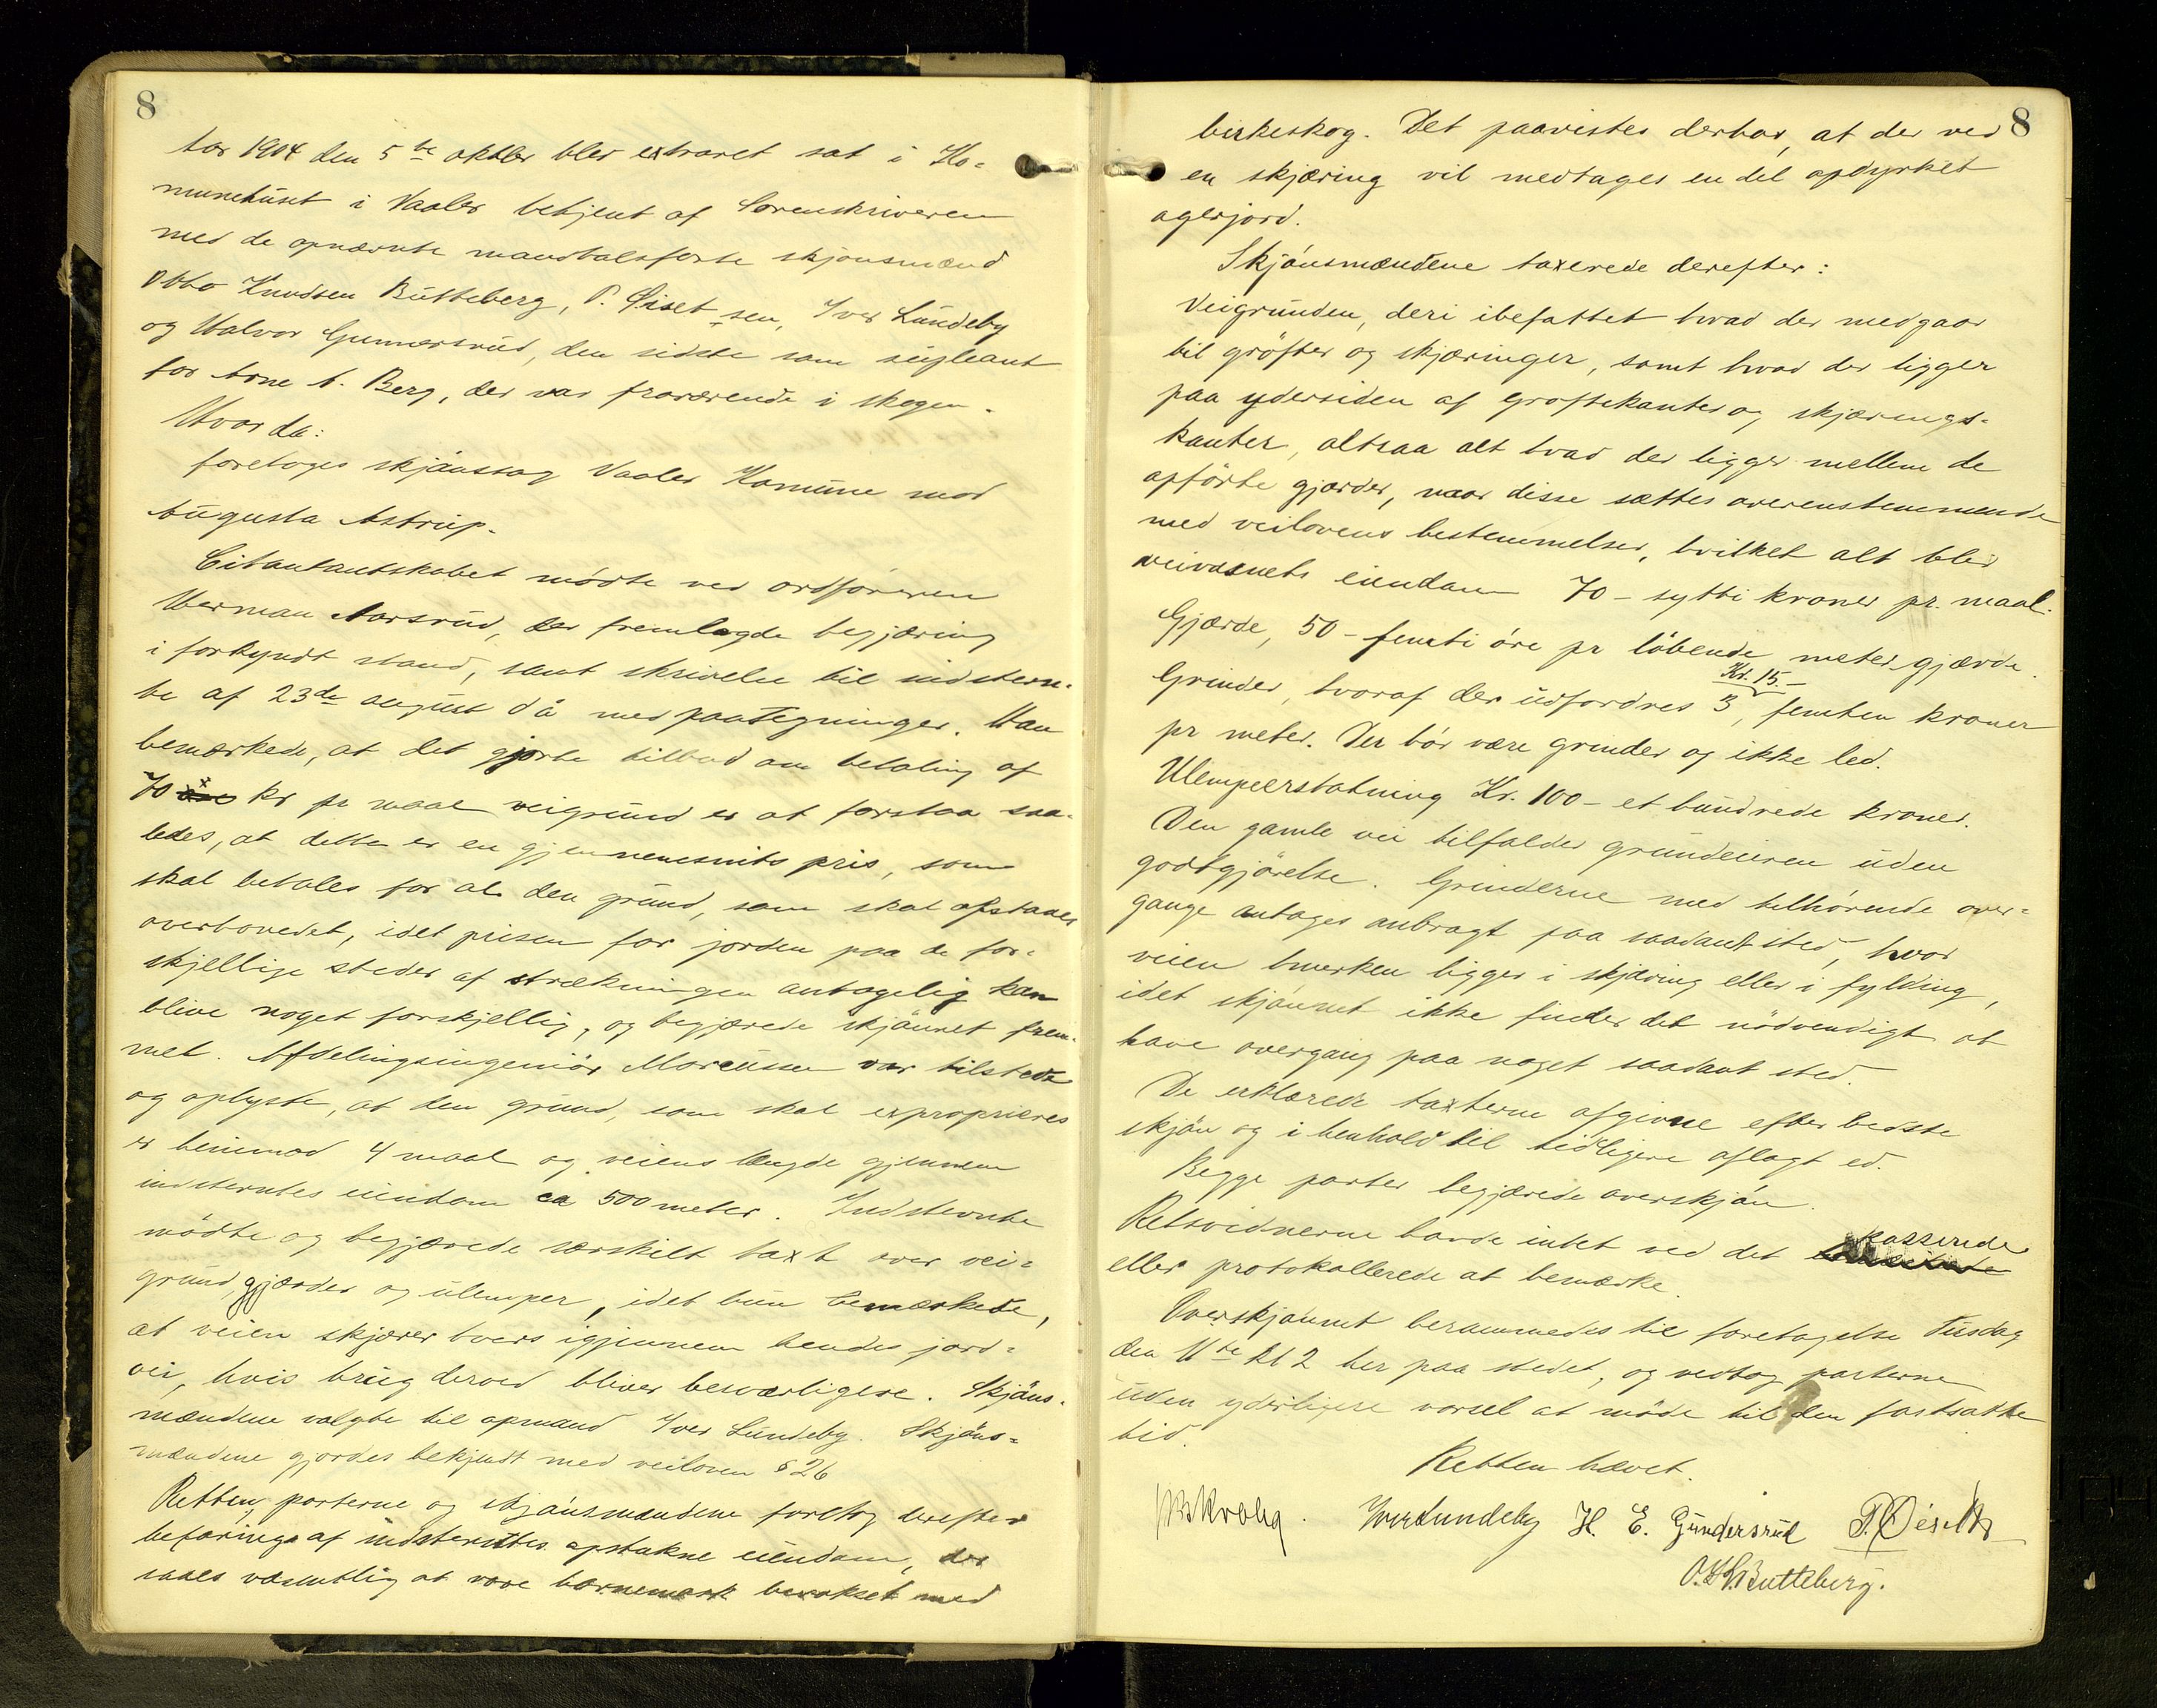 8
Aar 1904 den 5te oktbr blev extraret sat i Ko-
munehuset i Vaaler betjent af Sorenskriveren
med de opnævnte mandtalsførte skjønsmænd
Otto Knudsen Butteberg, P. Øiset sen, Iver Lundeby
og Halvor Gunnersrud, den sidste som supleant
for Arne A. Berg, der var fraværende i skogen.
Hvor da:
foretoges skjønssag Vaaler Komune mod
Augusta Astrup.
Citantantskabet mødte ved ordføreren
Herman Aarsrud, der fremlagde begjæring
i forkyndt stand, samt skrivelse til indstevn-
te af 23de august då med paategninger. Han
bemærkede, at det gjorte tilbud om betaling af
70 øre kr pr maal veigrund er at forstaa saa-
ledes, at dette er en gjennemsnits pris, som
skal betales for al den grund, som skal afstaaes
overhovedet, idet prisen for jorden paa de for-
skjellige steder af strækningen antagelig kan
blive noget forskjellig, og begjærede skjønnet frem-
met. Afdelingsingeniør Marcussen var tilstede
og oplyste, at den grund, som skal exproprieres
er henimod 4 maal og veiens længde gjennem
indstevntes eiendom ca 500 meter. Indstevnte
mødte og begjærede særskilt taxt over vei-
grund, gjærder og ulemper, idet hun bemærkede,
at veien skjærer tvers igjennem hendes jord-
vei, hvis brug derved bliver besværligere. Skjøns-
mændene valgte til opmand Iver Lundeby. Skjøns-
mændene gjordes bekjendt med veiloven § 26
Retten, parterne og skjønsmændene foretog derefter
befaring af indstevntes opstukne eiendom, der
saaes væsentlig at være havnemark bevokset med
8
birkeskog. Det paavistes derhos, at der ved
en skjæring vil medtages en del opdyrket
agerjord.
Skjønsmændene taxerede derefter:
Veigrunden, deri ibefattet hvad der medgaar
til grøfter og skjæringer, samt hvad der ligger
paa ydersiden af grøftekanter og skjærings-
kanter, altsaa alt hvad der ligger mellem de
opførte gjærder, naar disse sættes overensstemmende
med veilovens bestemmelser, hvilket alt blir
veivæsnets eiendom 70 - sytti kroner pr. maal.
Gjærde, 50 - femti øre pr løbende meter gjærde.
Kr. 15.-
Grinder, hvoraf der udfordres 3, femten kroner
pr meter. Der bør være grinder og ikke led.
Ulempeerstatning Kr. 100 - et hundrede kroner.
Den gamle vei tilfalder grundeieren uden
godtgjørelse. Grinderne med tilhørende over-
gange antages anbragt paa saadant sted, hvor
veien hverken ligger i skjæring eller i fylding,
idet skjønnet ikke finder det nødvendigt at
have overgang paa noget saadant sted.
De erklærede taxterne afgivne efter bedste
skjøn og i henhold til tidligere aflagt ed.
Begge parter begjærede overskjøn.
passerede
Retsvidnerne havde intet ved det
eller protokollerede at bemærke.
Overskjønnet berammedes til foretagelse Tirsdag
den 11te kl 2 her paa stedet, og vedtog parterne
uden yderligere varsel at møde til den fastsatte
tid.
Retten hævet.
Iver Lundeby H. E. Gundersrud P. Øiset
O. K. Butteberg.